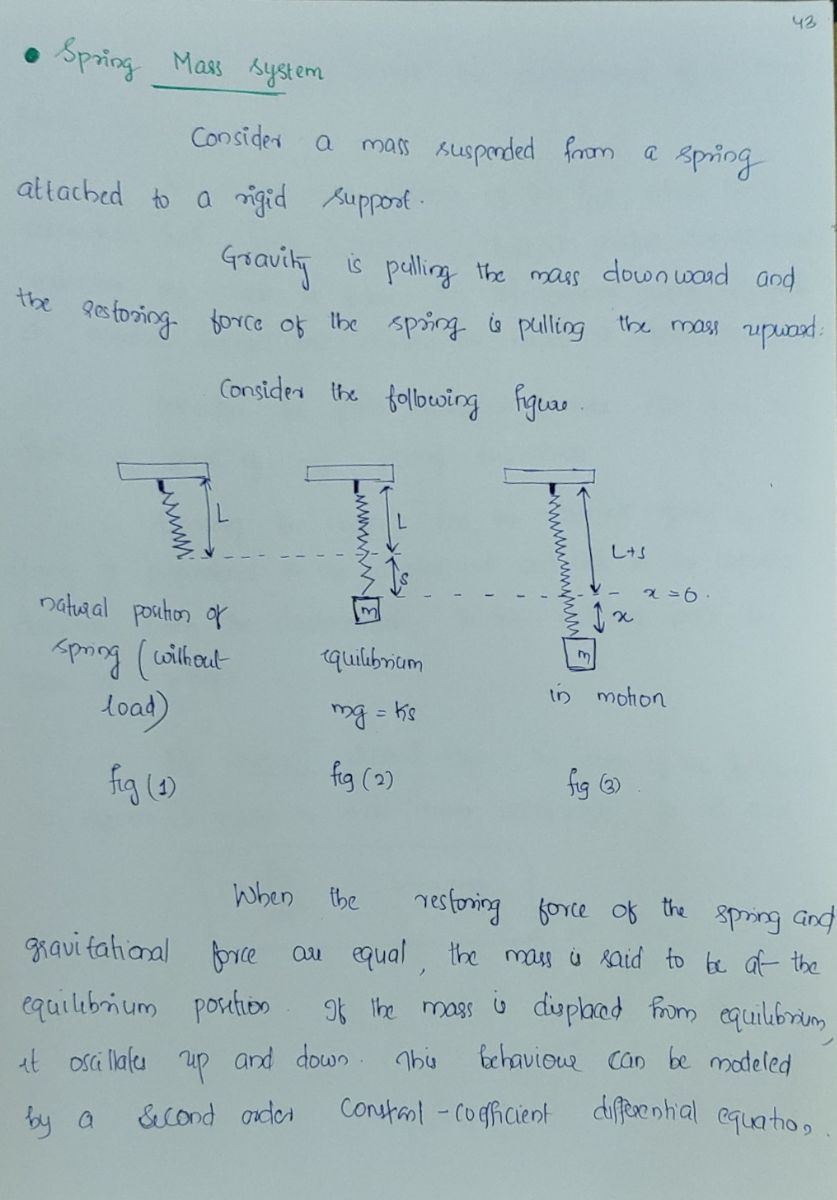 43
• Spring Mass system
Consider a mass suspended from a spring
attached to a rigid support.
Gravity is pulling the mass downward and
the restoring force of the spring is pulling the mass upward.
Consider the following figure.
L
L
s
L+s
x = 0.
x
m
m
natural position of
spring (without
load)
equilibrium
mg = ks
in motion
fig (1)
fig (2)
fig (3).
When the restoring force of the spring and
gravitational force are equal, the mass is said to be at the
equilibrium position. If the mass is displaced from equilibrium,
it oscillates up and down. This behaviour can be modeled
by a second order constant-coefficient differential equation.